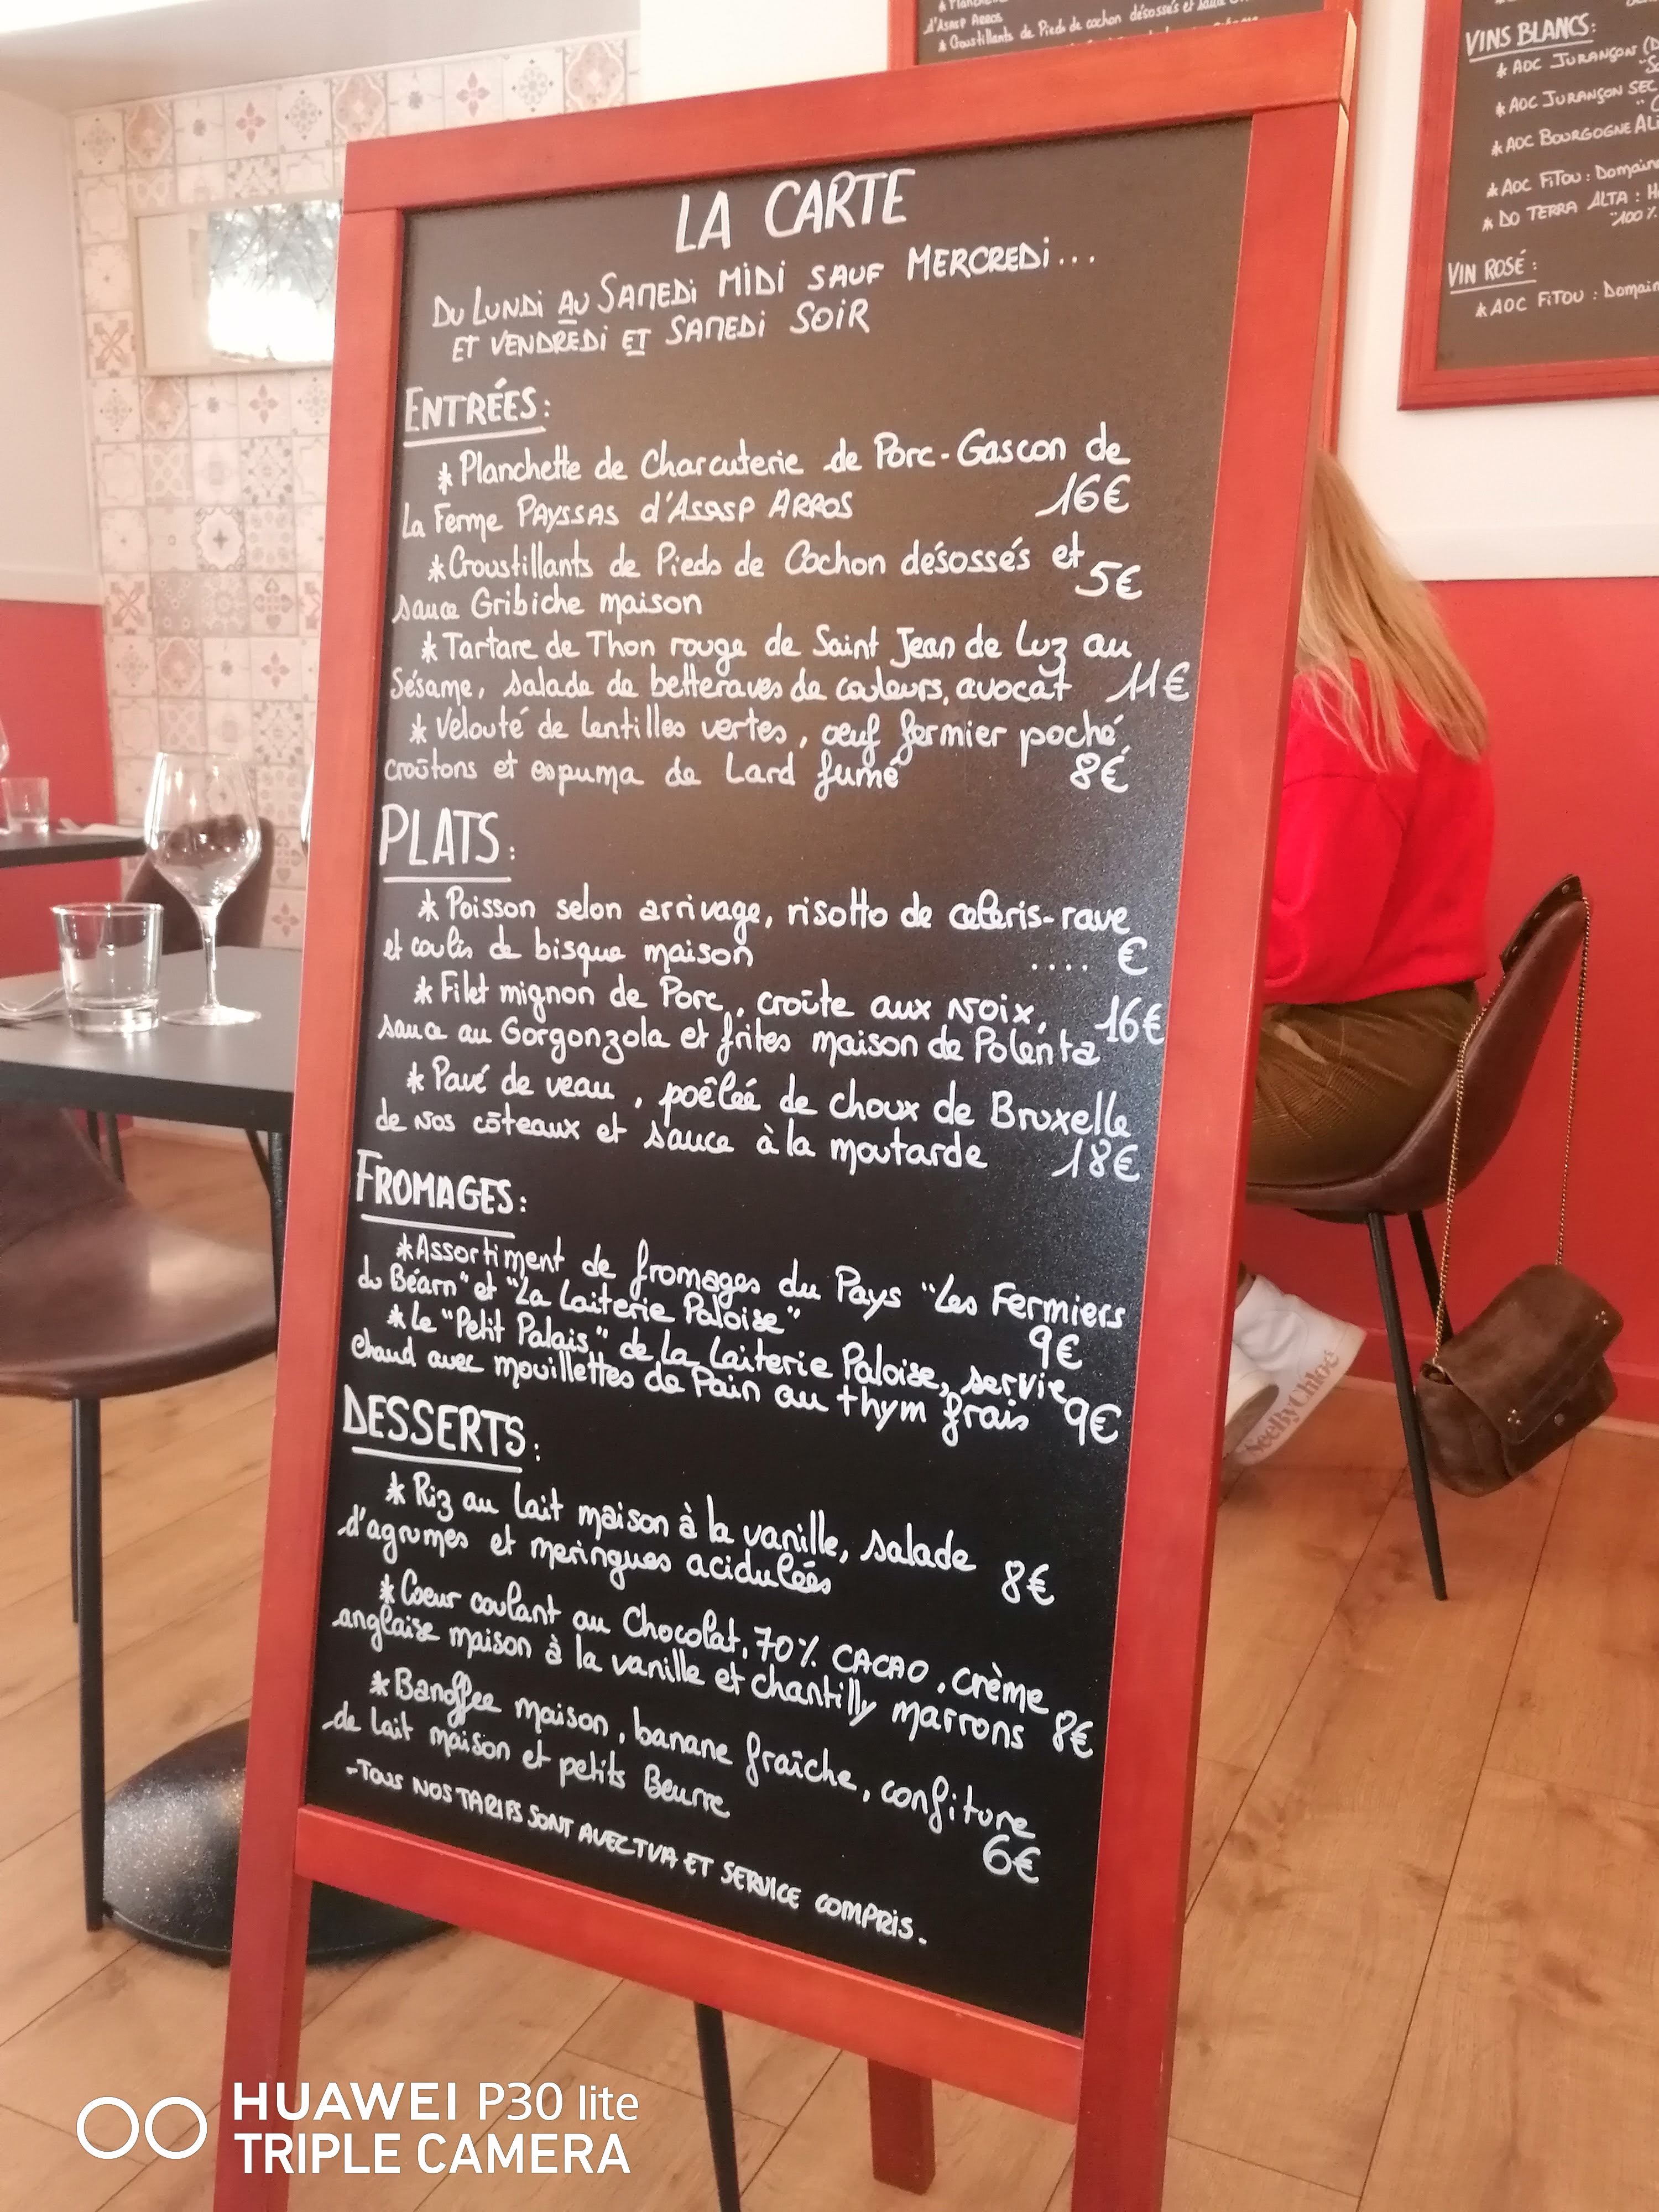 LA CARTE
DU LUNDI AU SAMEDI MIDI SAUF MERCREDI...
ET VENDREDI ET SAMEDI SOIR
ENTRÉES:
* Planchette de Charcuterie de Porc-Gascon de
La Ferme PAYSSAS d'ASASP ARROS 16€
* Croustillants de Pieds de Cochon désossés et
sauce Gribiche maison 5€
* Tartare de Thon rouge de Saint Jean de Luz au
Sésame, salade de betteraves de couleurs, avocat 11€
* Velouté de lentilles vertes, oeuf fermier poché,
croûtons et espuma de Lard fumé 8€
PLATS:
* Poisson selon arrivage, risotto de celeris-rave
et coulis de bisque maison .... €
* Filet mignon de Porc, croûte aux noix,
sauce au Gorgonzola et frites maison de Polenta 16€
* Pavé de veau, poêlée de choux de Bruxelle
de nos côteaux et sauce à la moutarde 18€
FROMAGES:
* Assortiment de fromages du Pays "Les Fermiers
du Béarn" et "La Laiterie Paloise" 9€
* Le "Petit Palais" de la Laiterie Paloise, servie
chaud avec mouillettes de Pain au thym frais 9€
DESSERTS:
* Riz au lait maison à la vanille, salade
d'agrumes et meringues acidulées 8€
* Coeur coulant au Chocolat, 70% CACAO, crème
anglaise maison à la vanille et chantilly marrons 8€
* Banoffee maison, banane fraîche, confiture
de lait maison et petits Beurre 6€
- TOUS NOS TARIFS SONT AVEC TVA ET SERVICE COMPRIS.
d'Asasp Arros
* Croustillants de Pieds de cochon désossés et sauce
VINS BLANCS:
* AOC JURANÇON
* AOC JURANÇON SEC
* AOC BOURGOGNE
* AOC FITOU: Domaine
* DO TERRA ALTA:
"100%
VIN ROSÉ:
* AOC FITOU: Domain
SeeByChloé
HUAWEI P30 lite
TRIPLE CAMERA